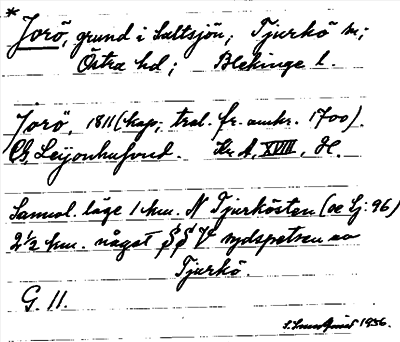 * Jorö, grund i Saltsjön; Tjurkö sn;
Östra hd; Blekinge l.
Jorö, 1811 (kop, tral. fr. omkr. 1700).
Leijonhufvud. A XVIII, H.
Sannol. läge 1 km. N Tjurkösten (se Sj. 96)
2½ km. något V sydspetsen av
Tjurkö.
G. 11.
1936.